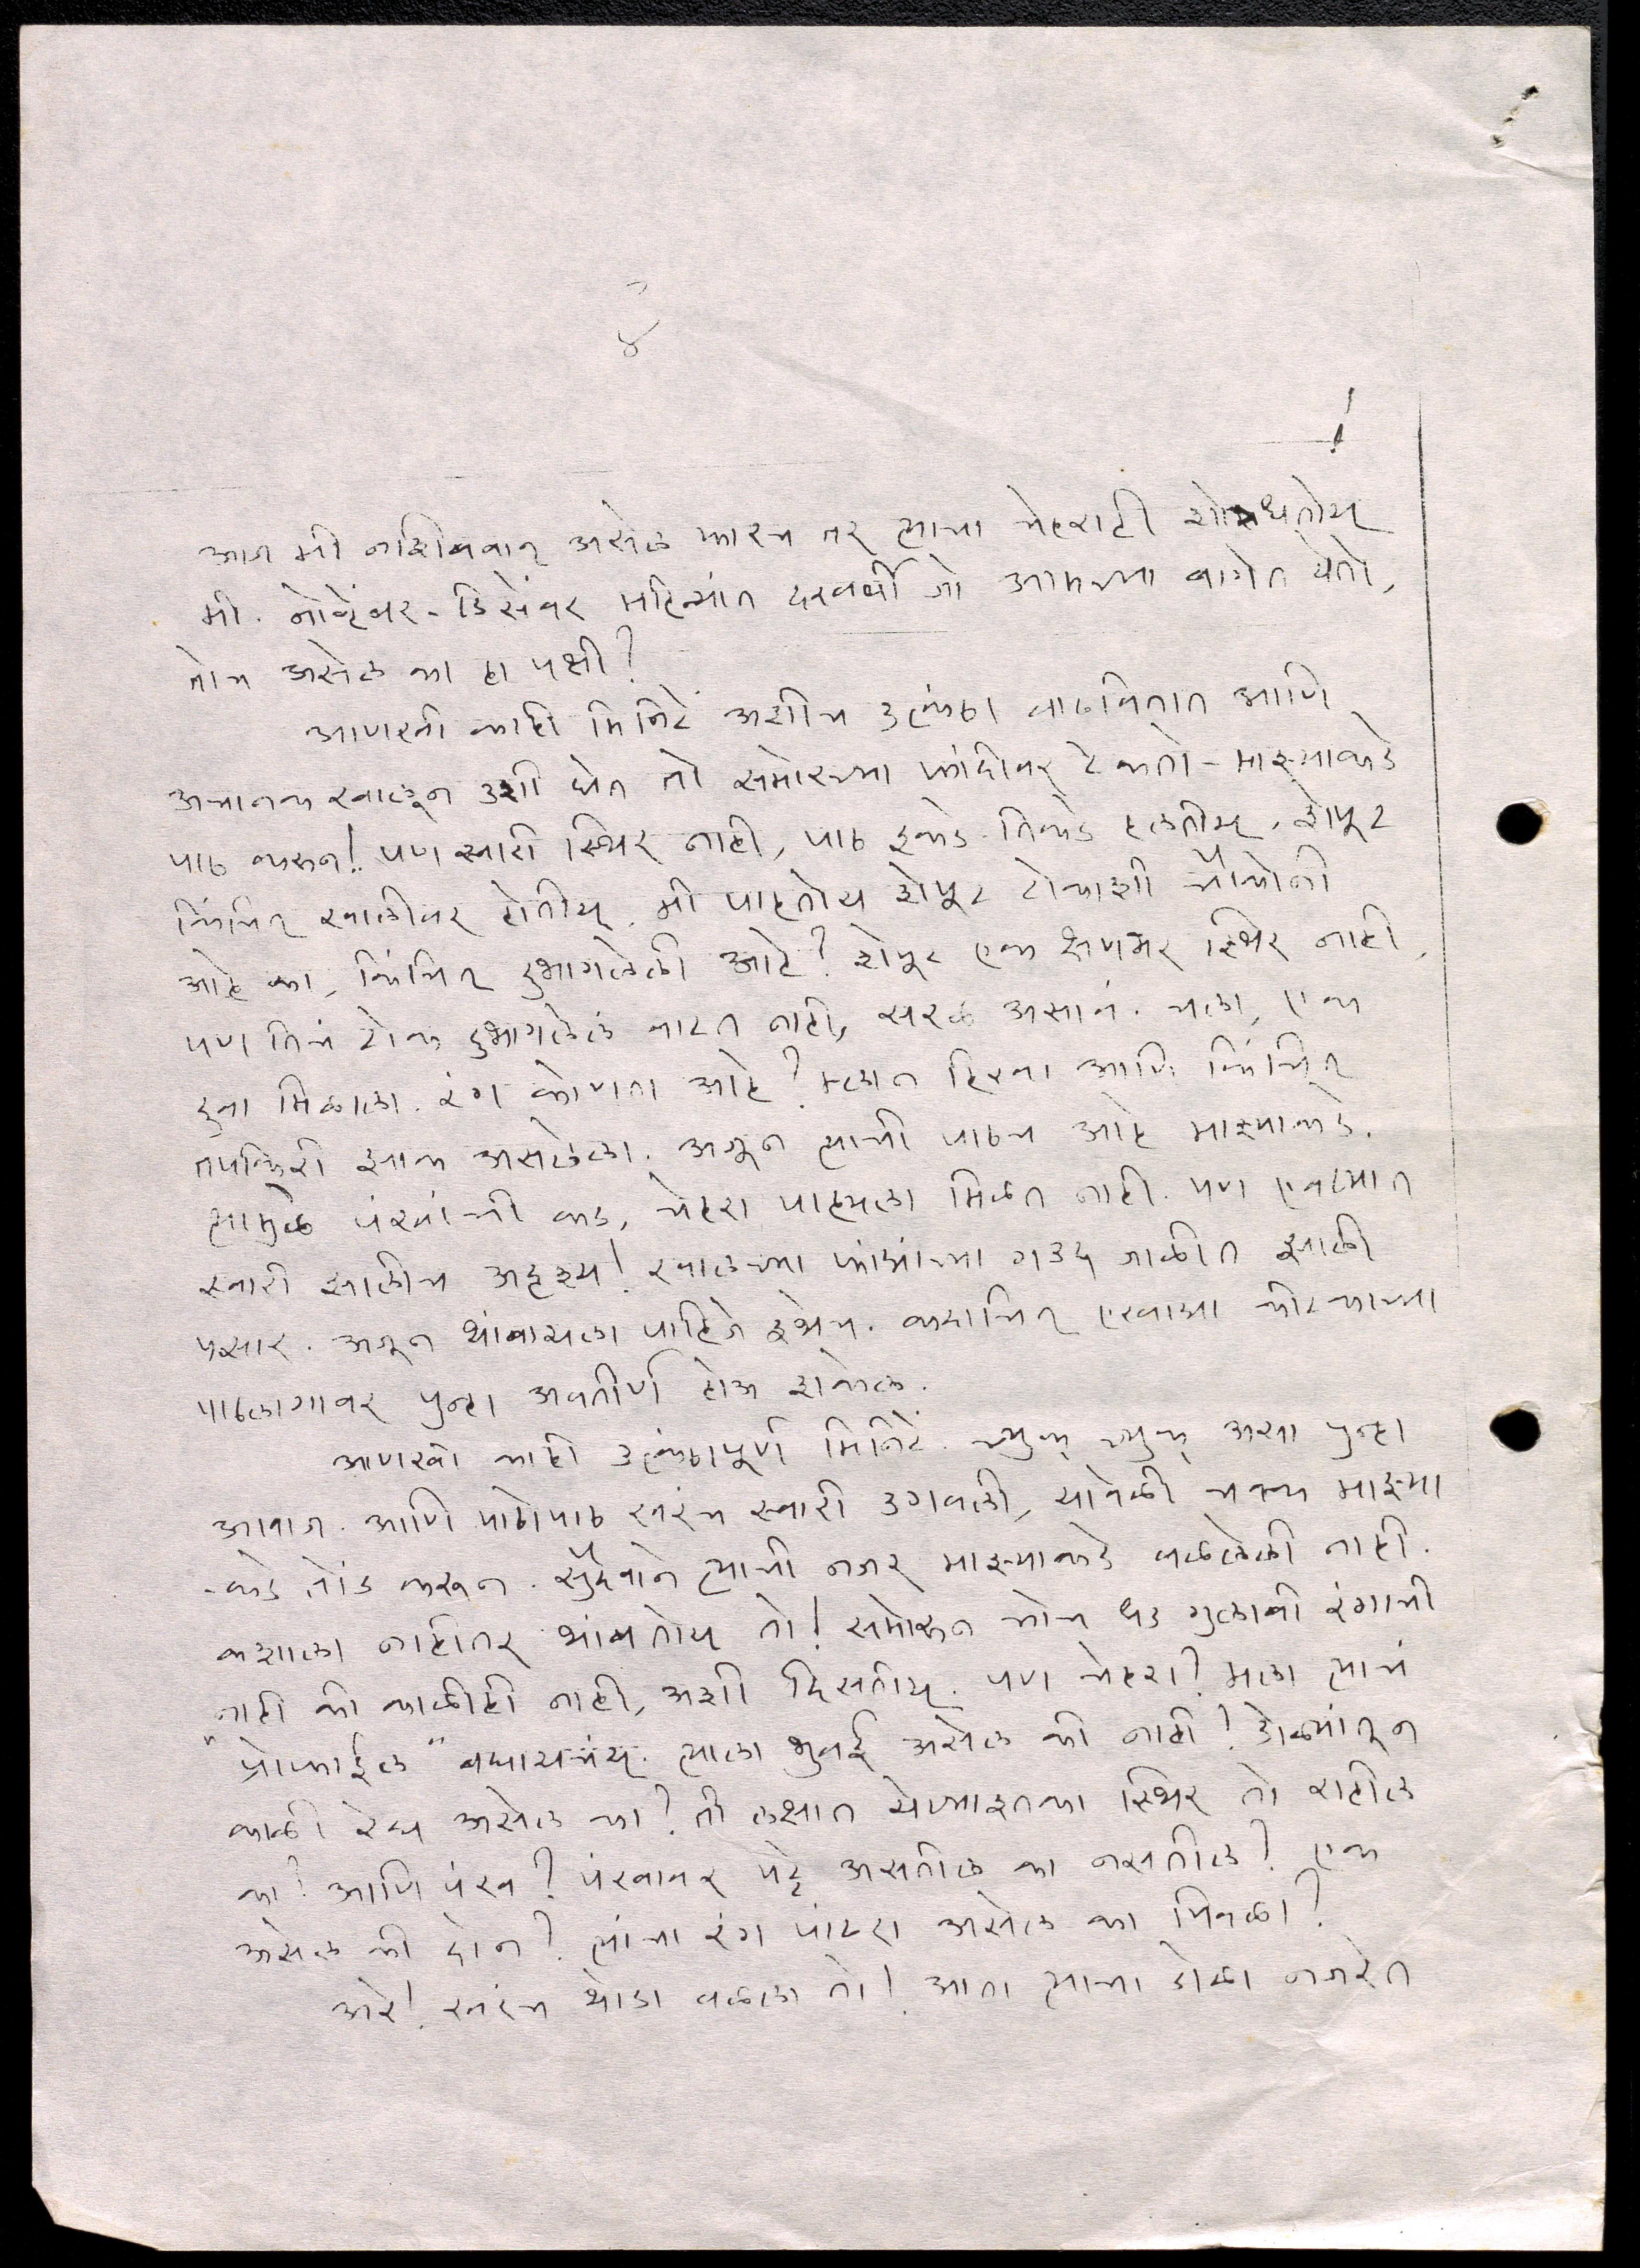 ४
आज मी नशिबवान् असेल फारच तर त्याचा चेहराही शोधतोय्
मी. नोव्हेंबर - डिसेंबर महिन्यांत दरवर्षी जो आमच्या बागेत येतो,
तोच असेल का हा पक्षी?
आणखी काही मिनिटें अशीच उत्कंठा वाढवितात आणि
अचानक खालून उशी घेत तो समोरच्या फांदीवर टेकतो - माझ्याकडे
पाठ करून! पण स्वारी स्थिर नाही, पाठ इकडे तिकडे हलतीय्, शेपूट
किंचित् खालीवर होतीय्. मी पाहतोय शेपूट टोकाशी चौकोनी
आहे का, किंचित् दुभागलेली आहे? शेपूट एक क्षणभर स्थिर नाही,
पण तिचं टोक दुभागलेलं वाटत नाही, सरळ असावं. चला, एक
दुवा मिळाला. रंग कोणता आहे? मळकट हिरवा आणि किंचित्
तपकिरी झाक असलेला. अजून त्याची पाठच आहे माझ्याकडे.
त्यामुळे पंखांची कड, चेहरा पाहयला मिळत नाही. पण एवढ्यात
स्वारी झालीच अदृश्य! खालच्या फांद्यांच्या गडद जाळीत झाली
पसार. अजून थांबायला पाहिजे इथेच. कदाचित् एखाद्या फांटकाच्या
पाठलागावर पुन्हा अवतीर्ण होऊ शकेल.
आणखी काही उत्कंठापूर्ण मिनिटे. च्युक् च्युक् असा पुन्हा
आवाज. आणि पाठोपाठ खरंच स्वारी उगवली, यावेळी चक्क माझ्या
-कडे तोंड करून. सुदैवाने त्याची नजर माझ्याकडे वळलेली नाही.
कशाला नाहीतर थांबतोय् तो! समोरून चोच धड गुलाबी रंगाची
नाही की काळीही नाही, अशी दिसतीय्. पण चेहरा? मला त्याचं
"प्रोफाईल" बघायचंय्. त्याला भुवई असेल की नाही? डोळ्यांतून
काळी रेघ असेल का? ती लक्षात येण्याइतका स्थिर तो राहील
का? आणि पंख? पंखावर पट्टे असतील का नसतील? एक
असेल की दोन? त्यांचा रंग पांढरा असेल का पिवळा?
अरे! खरंच थोडा वळला तो! आता त्याचा डोळा नजरेत